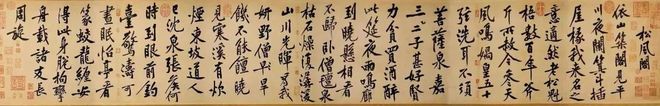 松風閣
依山築閣見平
川夜闌箕斗插
屋椽我來名之
意適然老松魁
梧數百年斧
斤所赦今參天
風鳴媧皇五十
弦洗耳不須
菩薩泉嘉二
三子甚好賢
力貧買酒醉
此筵夜雨鳴廊
到曉懸相看
不歸臥僧氈泉
枯石燥復潺湲
山川光暉為我
妍野僧旱
飢不能饘曉
見寒溪有炊
煙東坡道人
已沈泉張侯何
時到眼前釣
臺驚濤可
晝眠怡亭看
篆蛟龍纏安
得此身脫拘攣
舟載諸友長
周旋